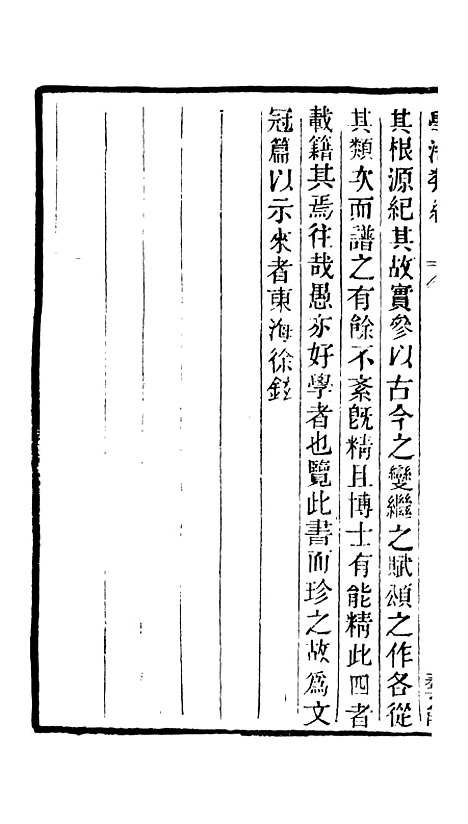 其根源紀其故實參以古今之變繼之賦頌之作各從
其類次而譜之有餘不紊旣精且博士有能精此四者
載籍其焉往哉愚亦好學者也覽此書而珍之故爲文
冠篇以示來者東海徐鉉